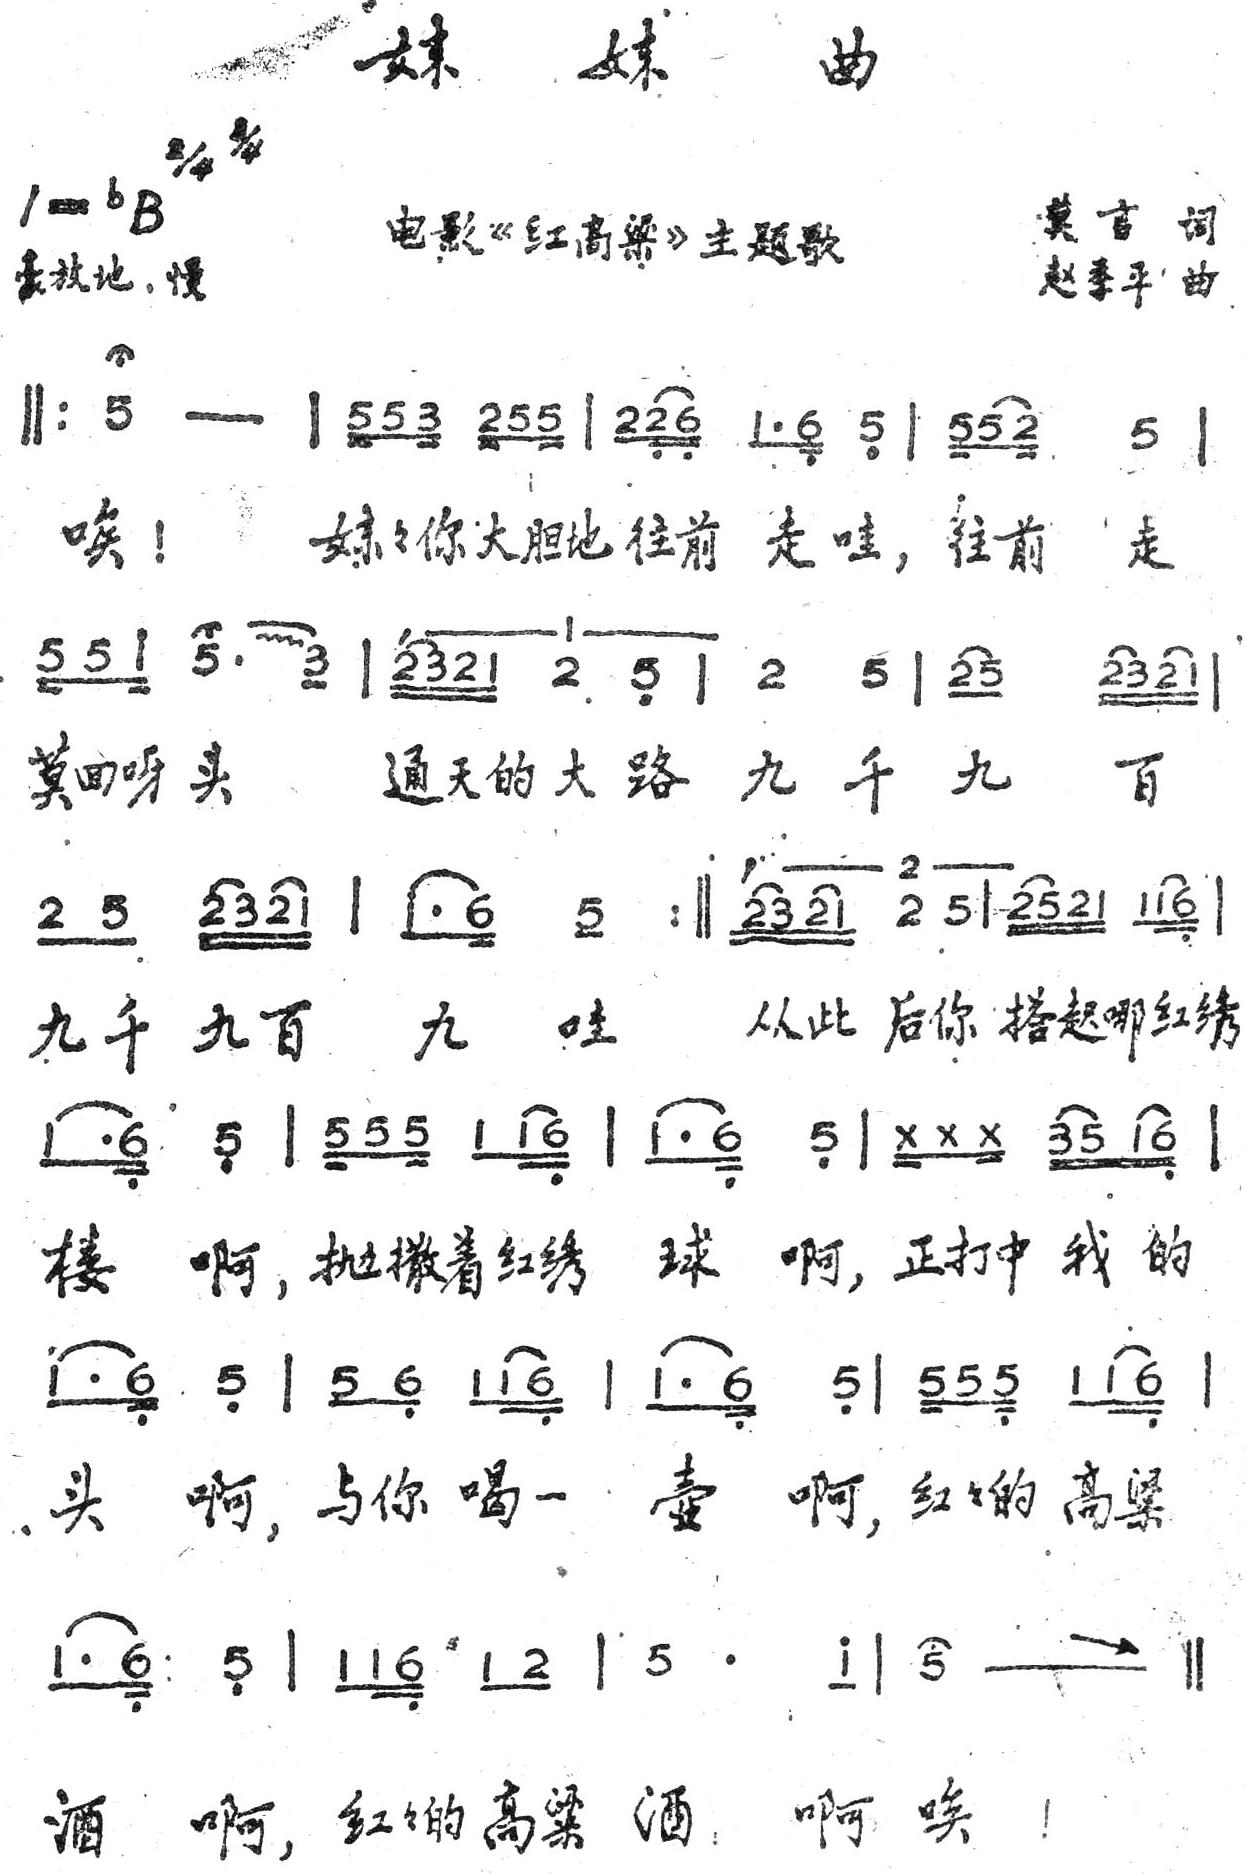 妹 妹 曲
2/4 3/4
1=bB
电影《红高粱》主题歌
莫言 词
豪放地、慢
赵季平 曲
‖: 5 — | 553 255 | 226 1·6 5 | 552 5 |
唉! 妹々你大胆地往前 走哇, 往前 走
551 5· 3 | 2321 2 5 | 2 5 | 25 2321 |
莫回呀头 通天的大路 九千九 百
2 5 2321 | 1·6 5 :‖ 2321 2 5 | 2521 116 |
九千九百 九 哇 从此后你 搭起哪红绣
1·6 5 | 555 116 | 1·6 5 | xxx 3516 |
楼 啊, 抛撒着红绣 球 啊, 正打中我的
1·6 5 | 5 6 116 | 1·6 5 | 555 116 |
头 啊, 与你喝一 壶 啊, 红々的高粱
1·6 5 | 116 12 | 5 · i | 5 — ‖
酒 啊, 红々的高粱 酒 啊 唉!